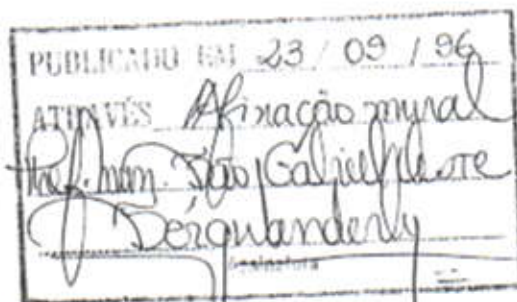 PUBLICADO EM 23 / 09 / 96
ATRAVÉS Afixação mural
Pref. mun. São Gabriel
Assinatura